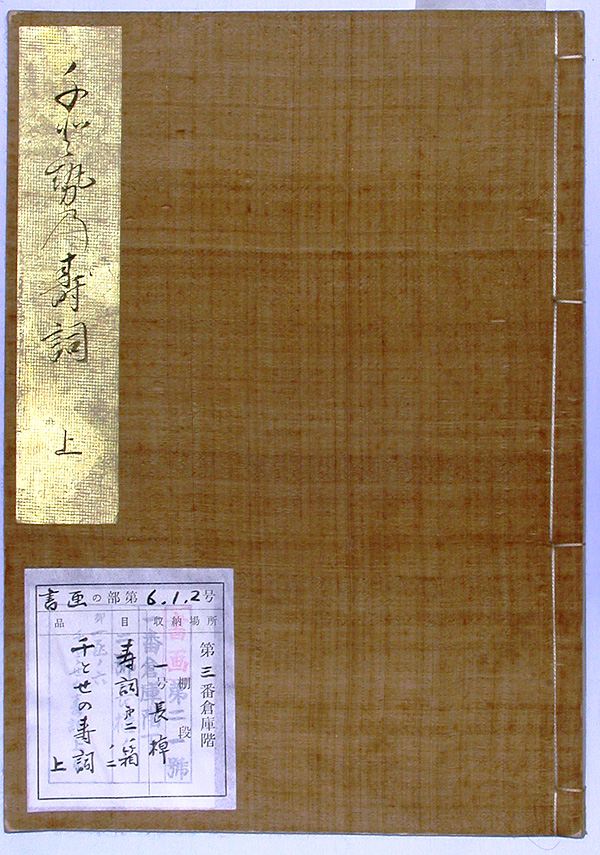 千登勢乃寿詞 上
書画の部第6.1.2号
品目
収納場所
第三番倉庫階
棚段
一号長棹
寿詞第二箱
ノ二
千とせの寿詞 上
書画第二
號
番倉庫